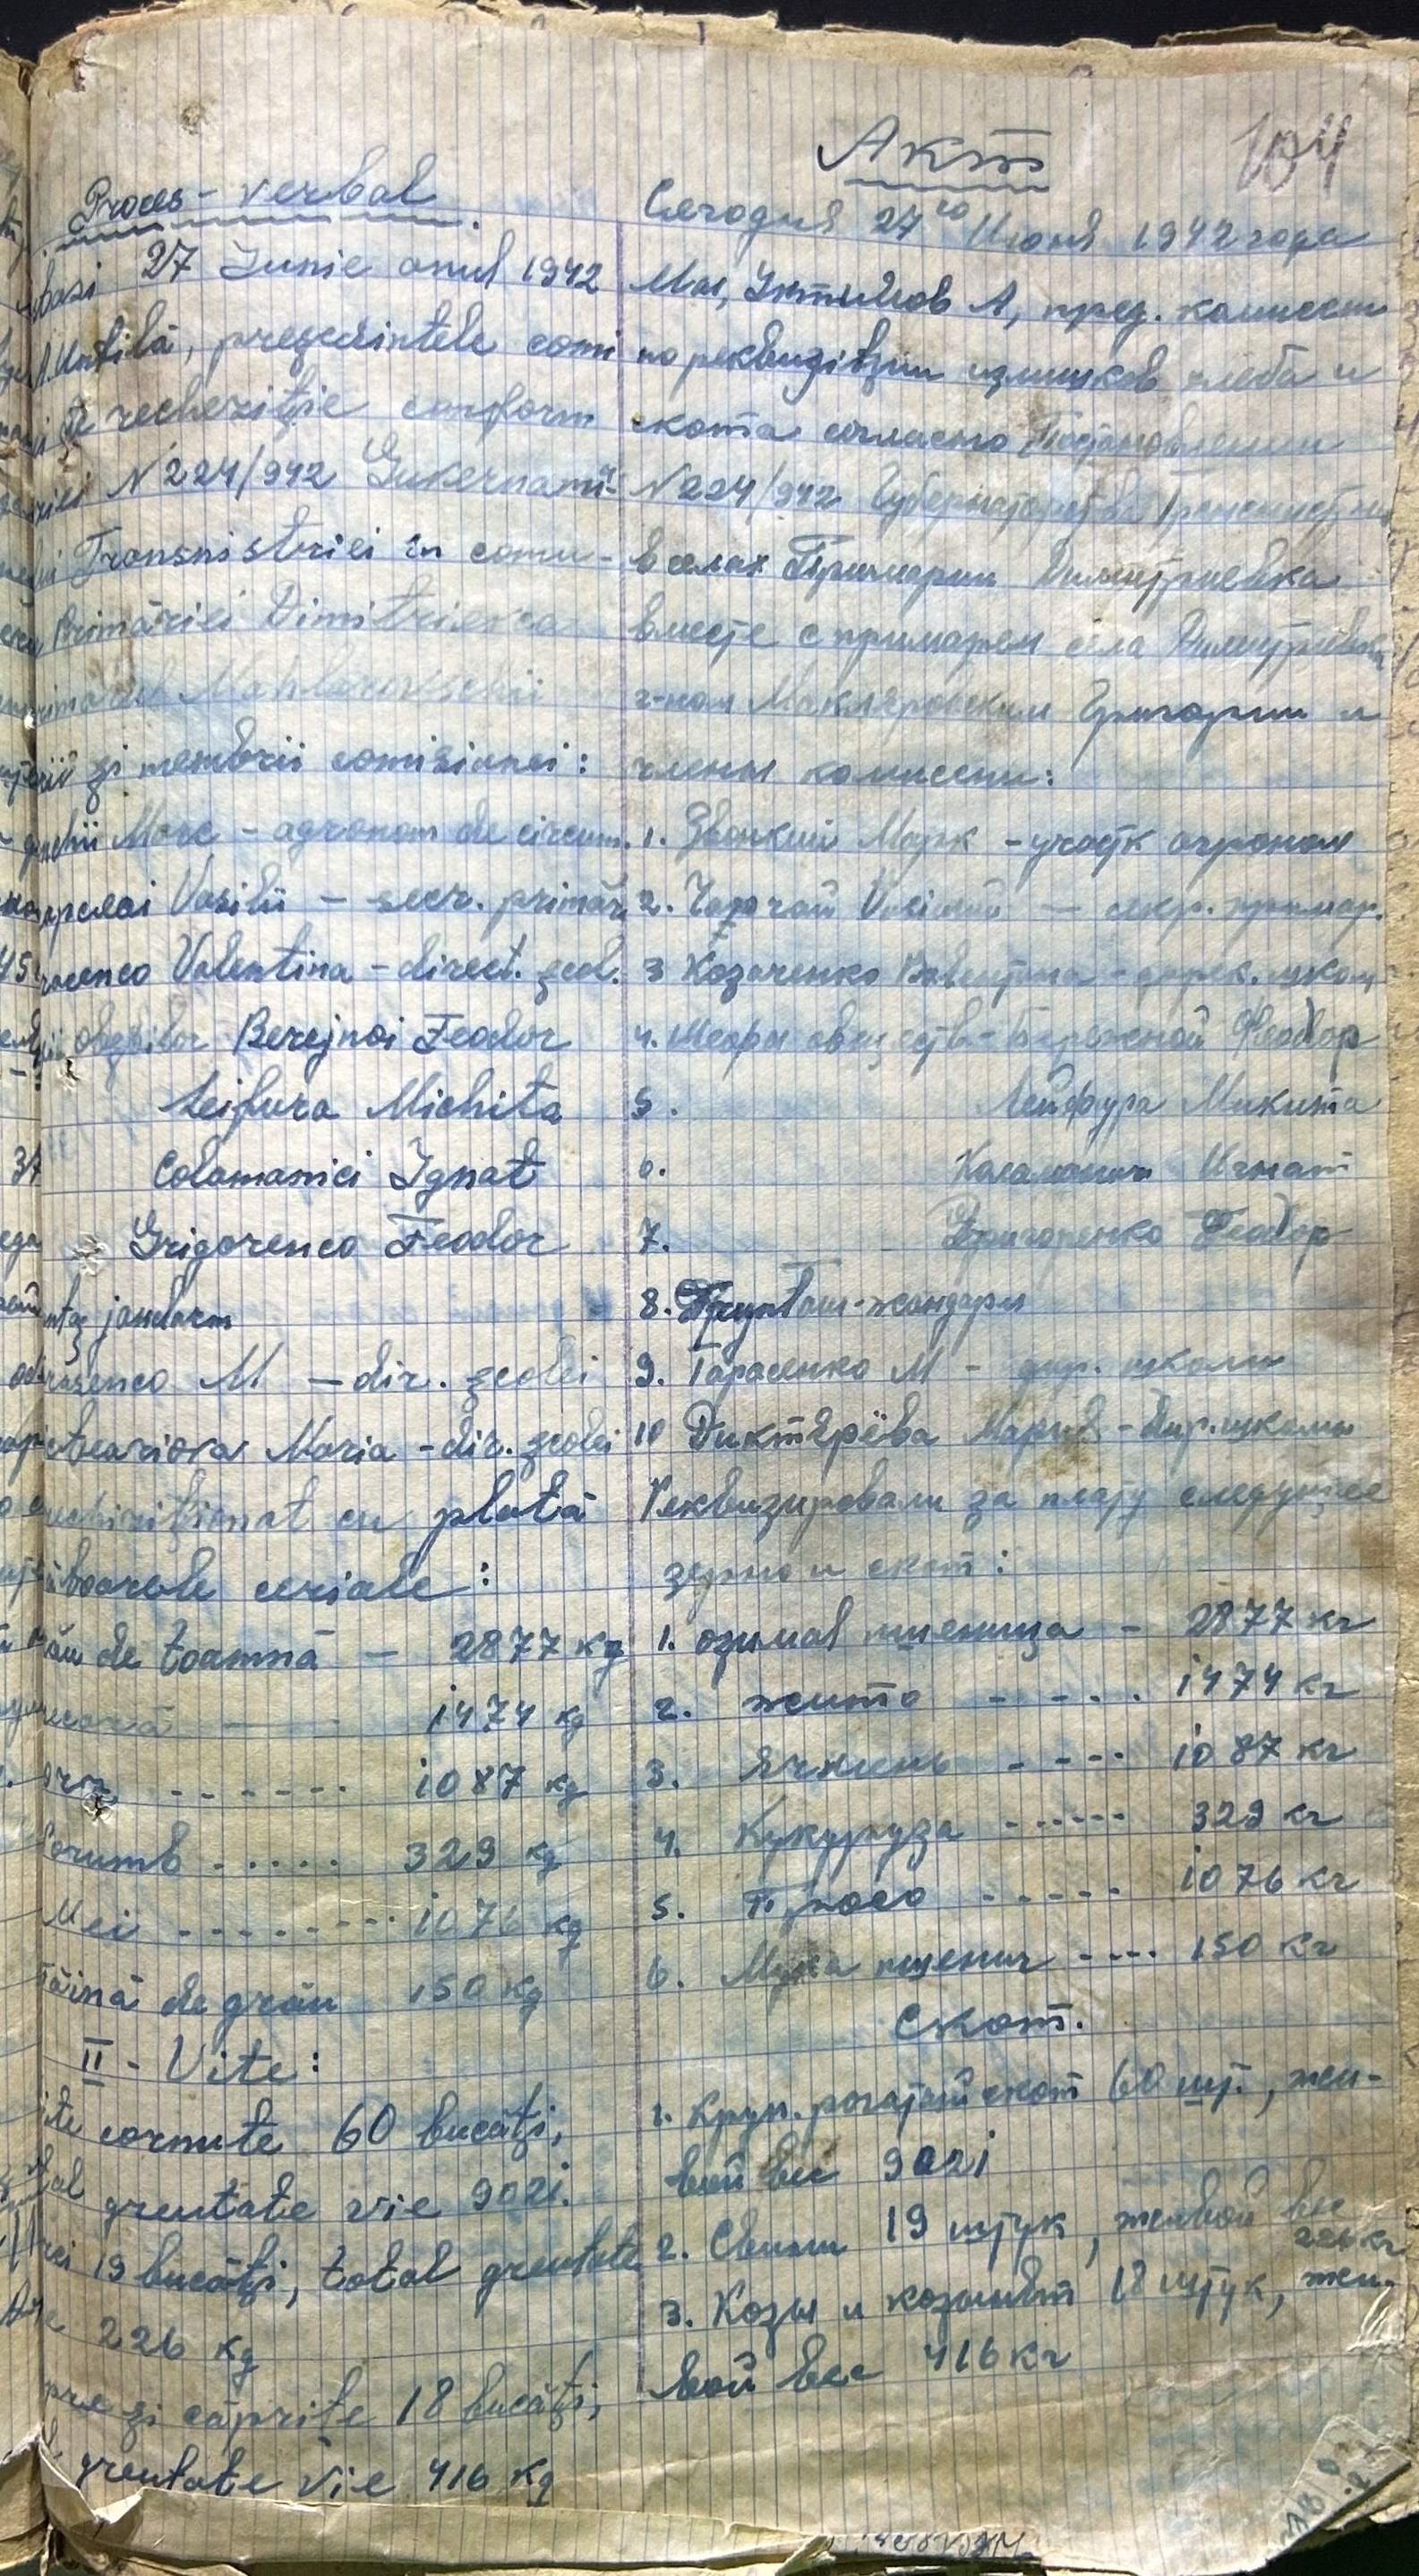 104
Proces-verbal.
27 Iunie anul 1942
Untilă, preşedintele comi
de rechiziţie conform
N 224/942 Guvernamî-
Transnistriei în comu-
Primăriei Dimitrievca
şi membrii comisianei:
Marc - agronom de circum.
Vasilii - secr. primăr.
Valentina - direct. şcol.
obştilor Berejnoi Feodor
Leifura Michita
Colamanici Ignat
Grigorenco Feodor
jandarm
M. - dir. şcolei
Maria - dir. şcolei
cu plată
ceriale:
de toamnă - 2877 kg
1474 kg
orz ------- 1087 kg
Porumb ..... 329 kg
Mei -------- 1076 kg
de grâu 150 kg
II - Vite:
cornute 60 bucăţi,
greutate vie 902i.
19 bucăţi, total greutate
226 kg
şi căprite 18 bucăţi,
greutate vie 416 kg
Акт
Сегодня 27го Июня 1942 года
Мы, Унтилов А, пред. комиссии
по реквизиции излишков хлеба и
скота согласно Постановлении
N 224/942 Губернаторства Транснистрии
в селах Примарии Димитриевка
вместе с примарем села Димитриевка
г-ном Маклеровским Григории и
члены комиссии:
1. Звонкий Марк - участк агроном
2. Василий - секр. примар.
3 Козаченко Валентина - дирек. школ
4. Бережной Феодор
5. Лейфура Микита
6. Каламанич Игнат
7. Григоренко Феодор
8. жандарм
9. Тарасенко М - дир. школи
10 Диктярёва Мария - Дир. школы
Реквизировали за плату следующее
зерно и скот:
1. озимая пшеница - 2877 кг
2. жито ----- 1474 кг
3. Ячмень ---- 1087 кг
4. Кукуруза ------ 329 кг
5. Просо ------ 1076 кг
6. Мука пшенич ---- 150 кг
Скот.
1. Круп. рогатый скот 60 шт., жи-
вой вес 902i
2. Свиньи 19 штук, живой вес
226 кг
3. Козы и козлият 18 штук, жи-
вой вес 416 кг